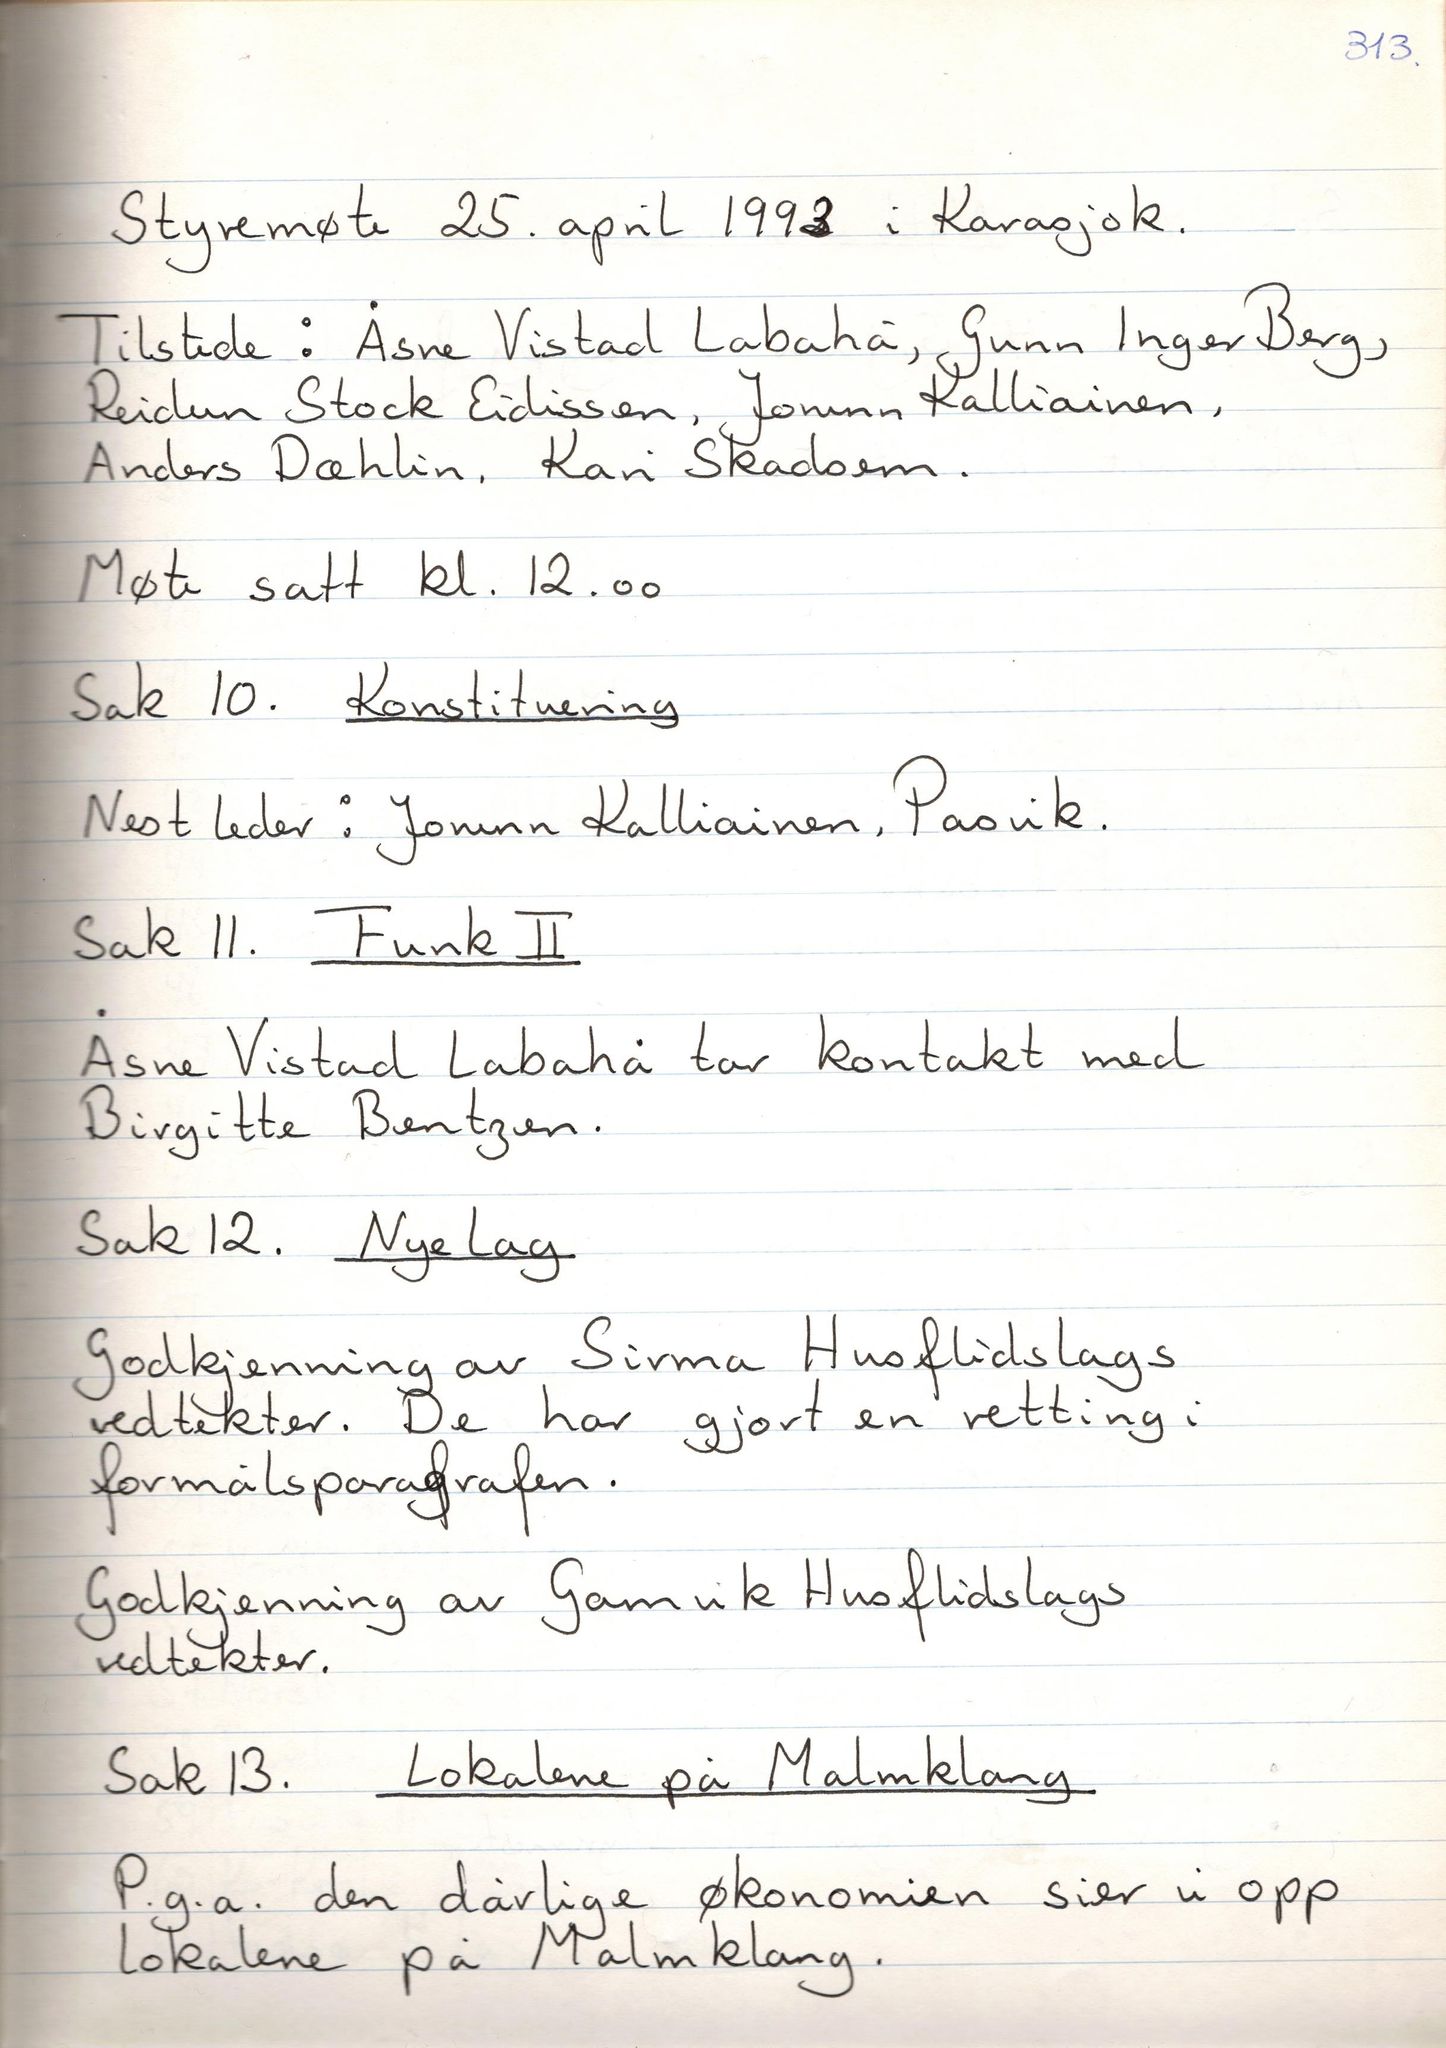 313.
Styremøte 25. april 1993 i Karasjok.
Tilstede: Åsne Vistad Labahå, Gunn Inger Berg,
Reidun Stock Eidissen, Jorunn Kalliainen,
Anders Dæhlin, Kari Skadsem.
Møte satt kl. 12.00
Sak 10. Konstituering
Nest leder: Jorunn Kalliainen, Pasvik.
Sak 11. Funk II
Åsne Vistad Labahå tar kontakt med
Birgitte Bentzen.
Sak 12. Nye lag
Godkjenning av Sirma Husflidslags
vedtekter. De har gjort en retting i
formålsparagrafen.
Godkjenning av Gamvik Husflidslags
vedtekter.
Sak 13. Lokalene på Malmklang
P.g.a. den dårlige økonomien sier vi opp
lokalene på Malmklang.